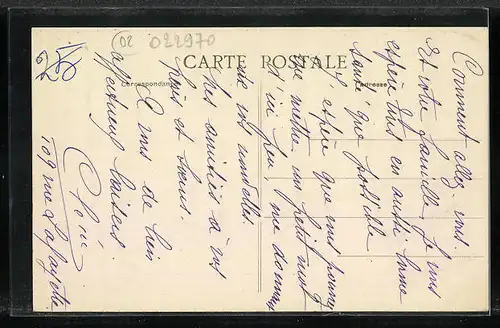 02 022970
CARTE POSTALE
Correspondance
Adresse
Comment allez vous
Et votre famille je vous
espère tous en aussi bonne
santé que possible
J'espère que vous pourrez
me mettre un petit mot
d'ici peu, me donnant
de vos nouvelles.
Mes amitiés à vos
frères et sœurs.
A vous de loin
affectueux baisers.
109 rue Lafayette